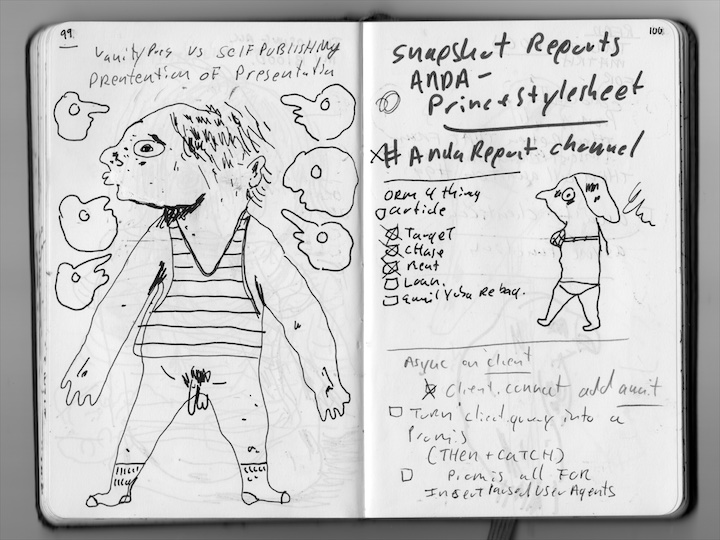 99
Vanity Press vs SelfPublishing
Prentention of Presentatin
100
Snapshot Reports
ANDA -
Prince stylesheet
# Anda Report channel
ORM 4 thing
article
Target
CHase
Rent
Loan.
Email Yuba Re bag.
Async on client
Client.connect add await
Turn client.query into a
Promis
(THEN + CATCH)
Promis all FOR
Insert Parsed User Agents